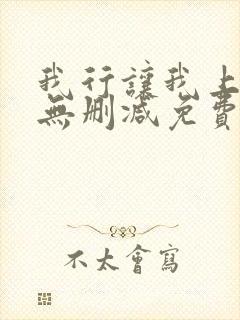 我行讓我上
無刪減免費
不太會寫